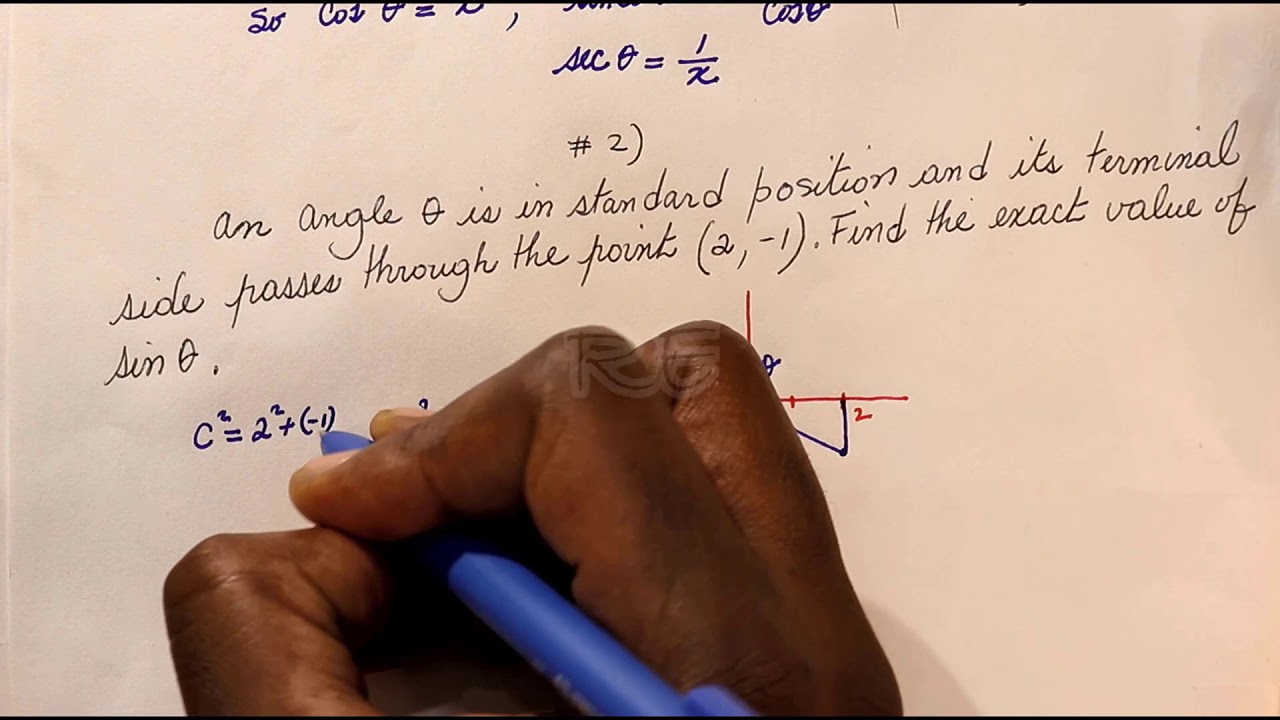 So Cos θ = x ,
Cosθ
sec θ = 1/x
# 2)
an angle θ is in standard position and its terminal
side passes through the point (2, -1). Find the exact value of
sin θ.
θ
2
C² = 2² + (-1)
RG